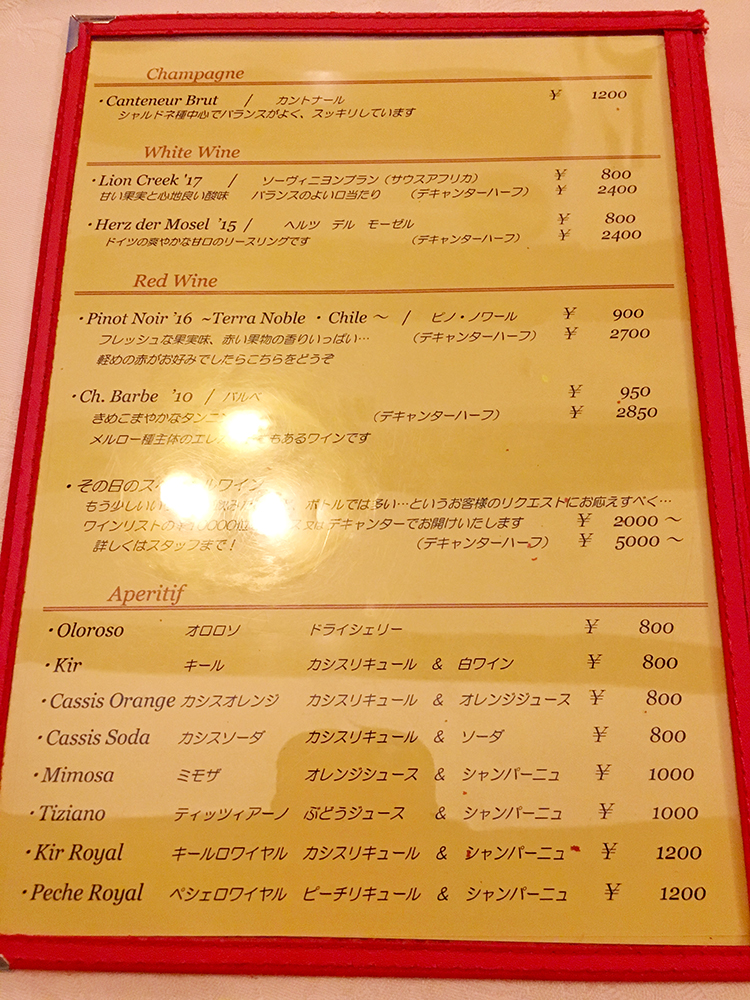 Champagne
・Canteneur Brut / カントナール ¥ 1200
シャルドネ種中心でバランスがよく、スッキリしています
White Wine
・Lion Creek '17 / ソーヴィニヨンブラン（サウスアフリカ） ¥ 800
甘い果実と心地良い酸味 バランスのよい口当たり （デキャンターハーフ） ¥ 2400
・Herz der Mosel '15 / ヘルツ デル モーゼル ¥ 800
ドイツの爽やかな甘口のリースリングです （デキャンターハーフ） ¥ 2400
Red Wine
・Pinot Noir '16 ~Terra Noble ・ Chile ～ / ピノ・ノワール ¥ 900
フレッシュな果実味、赤い果物の香りいっぱい… （デキャンターハーフ） ¥ 2700
軽めの赤がお好みでしたらこちらをどうぞ
・Ch. Barbe '10 / バルベ ¥ 950
きめこまやかなタンニン （デキャンターハーフ） ¥ 2850
メルロー種主体のエレ もあるワインです
・その日のス ルワイン
もう少しいい ボトルでは多い…というお客様のリクエストにお応えすべく…
ワインリストの デキャンターでお開けいたします ¥ 2000 ～
詳しくはスタッフまで！ （デキャンターハーフ） ¥ 5000 ～
Aperitif
・Oloroso オロロソ ドライシェリー ¥ 800
・Kir キール カシスリキュール & 白ワイン ¥ 800
・Cassis Orange カシスオレンジ カシスリキュール & オレンジジュース ¥ 800
・Cassis Soda カシスソーダ カシスリキュール & ソーダ ¥ 800
・Mimosa ミモザ オレンジシュース & シャンパーニュ ¥ 1000
・Tiziano ティッツィアーノ ぶどうジュース & シャンパーニュ ¥ 1000
・Kir Royal キールロワイヤル カシスリキュール & シャンパーニュ ¥ 1200
・Peche Royal ペシェロワイヤル ピーチリキュール & シャンパーニュ ¥ 1200